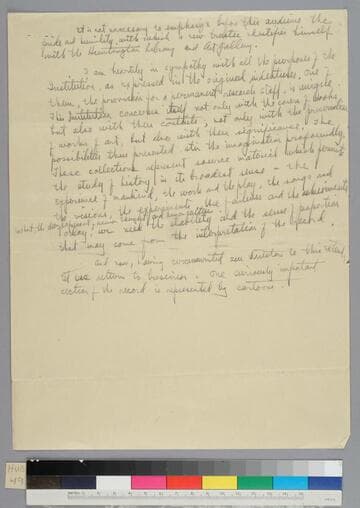 It is not necessary to emphasize before this audience the
pride and humility with which a new trustee identifies himself
with the Huntington Library and Art Gallery.
I am heartily in sympathy with all the purposes of the
Institution, as expressed in the original indenture. One of
them, the provision for a permanent research staff, is unique.
The Institution concerns itself not only with the care of books
but also with their contents, not only with the preservation
of works of art, but also with their significance. The
possibilities thus presented stir the imagination profoundly.
These collections represent source material which permits
the study of history in its broadest sense - the
experience of mankind, the work and the play, the songs and
the visions, the experiments, the failures and the achievements
Today, we need the stability and the sense of proportion
that may come from the interpretation of the record
And now, having
I return to business. One curiously important
section of the record is represented by cartoons.
HUB
49